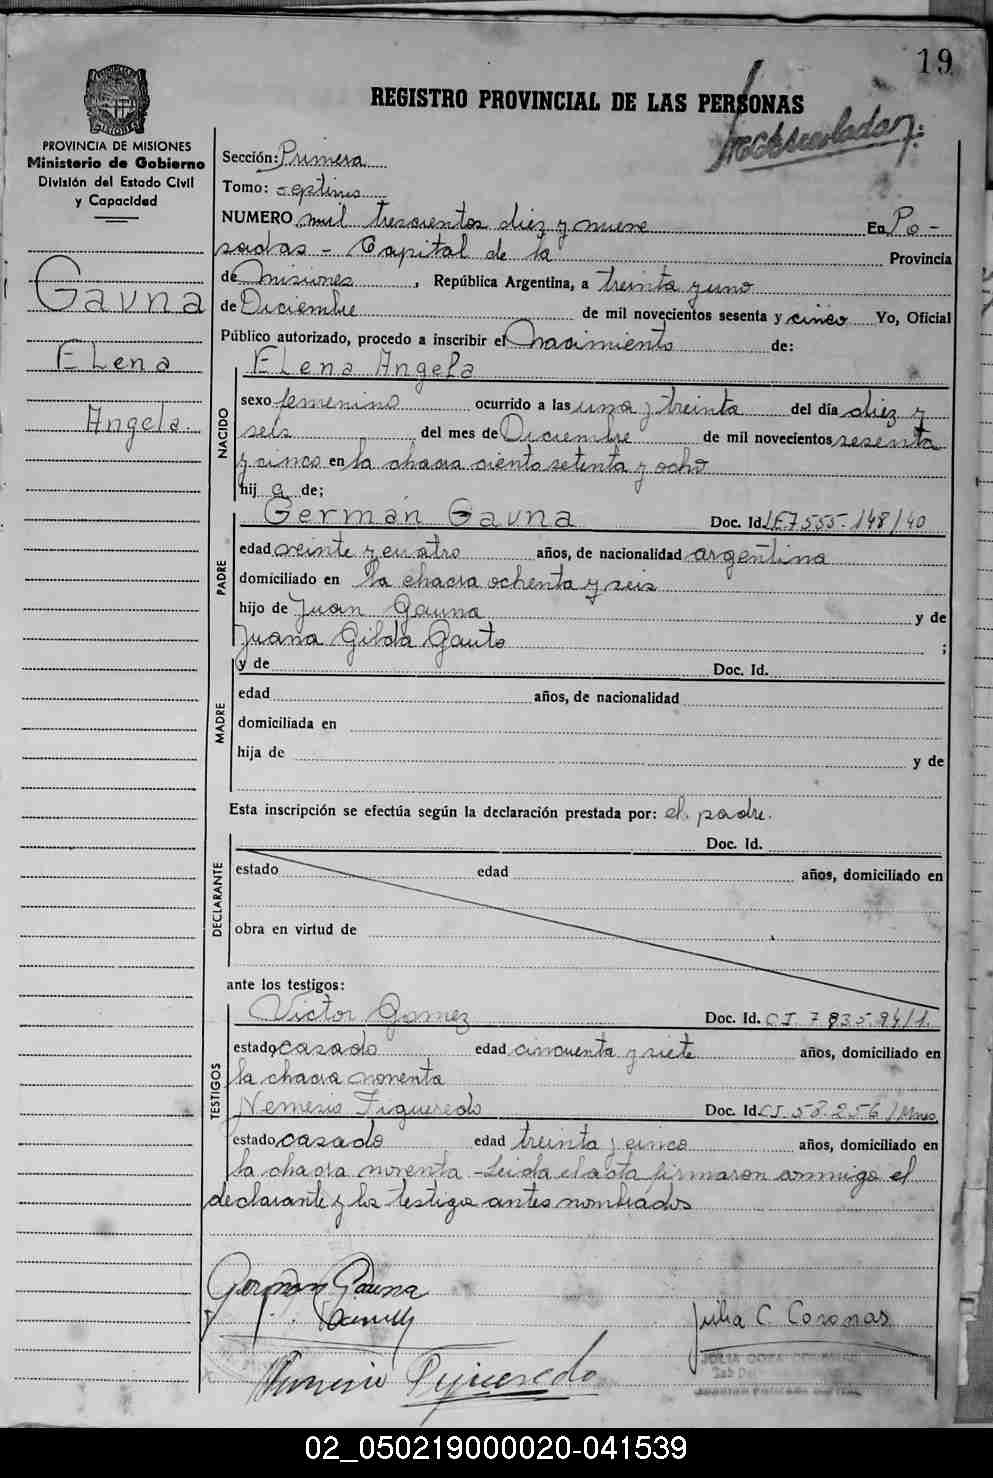 19
REGISTRO PROVINCIAL DE LAS PERSONAS
PROVINCIA DE MISIONES
Ministerio de Gobierno
División del Estado Civil
y Capacidad
Gauna
Elena
Angela.
Sección: Primera
Tomo: septimo
NUMERO mil trescientos diez y nueve En Po-
sadas - Capital de la Provincia
de Misiones, República Argentina, a treinta y uno
de Diciembre de mil novecientos sesenta y cinco Yo, Oficial
Público autorizado, procedo a inscribir el Nacimiento de:
NACIDO
Elena Angela
sexo femenino ocurrido a las una y treinta del día diez y
seis del mes de Diciembre de mil novecientos sesenta
y cinco en la chacra ciento setenta y ocho
hij a de;
PADRE
Germán Gauna Doc. Id. LE 7555.148/40
edad veinte y cuatro años, de nacionalidad argentina
domiciliado en la chacra ochenta y seis
hijo de Juan Gauna y de
Juana Gilda Gauto ;
MADRE
y de Doc. Id.
edad años, de nacionalidad
domiciliada en
hija de y de
Esta inscripción se efectúa según la declaración prestada por: el padre.
DECLARANTE
Doc. Id.
estado edad años, domiciliado en
obra en virtud de
ante los testigos:
TESTIGOS
Victor Gomez Doc. Id. C.I. 7
estado casado edad cincuenta y siete años, domiciliado en
la chacra noventa
Nemesio Figueredo Doc. Id. C.I. 58.256/Mnes
estado casado edad treinta y cinco años, domiciliado en
la chacra noventa - Leida el acta firmaron conmigo el
declarante y los testigos antes nombrados
German Gauna
Julia C. Coronas
Nemesio Figueredo
02_050219000020-041539